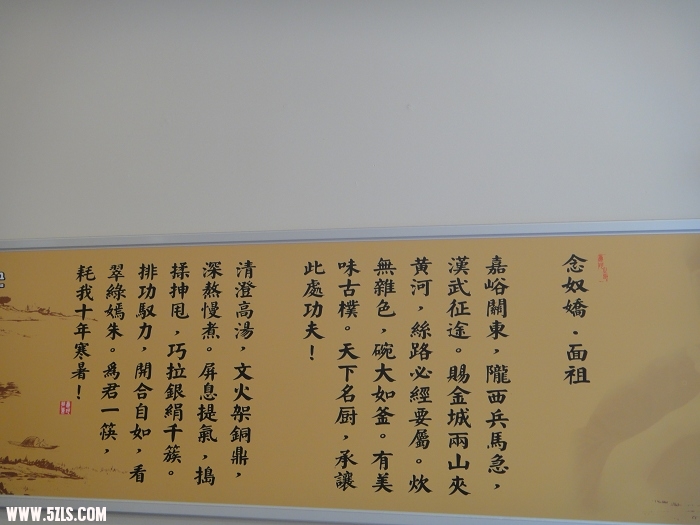 念奴嬌·面祖
嘉峪關東，隴西兵馬急，
漢武征途。賜金城兩山夾
黃河，絲路必經要屬。炊
無雜色，碗大如釜。有美
味古樸。天下名厨，承讓
此處功夫！
清澄高湯，文火架銅鼎，
深熬慢煮。屏息提氣，搗
揉抻甩，巧拉銀絹千簇。
排功馭力，開合自如，看
翠綠嫣朱。爲君一筷，
耗我十年寒暑！
WWW.5ZLS.COM